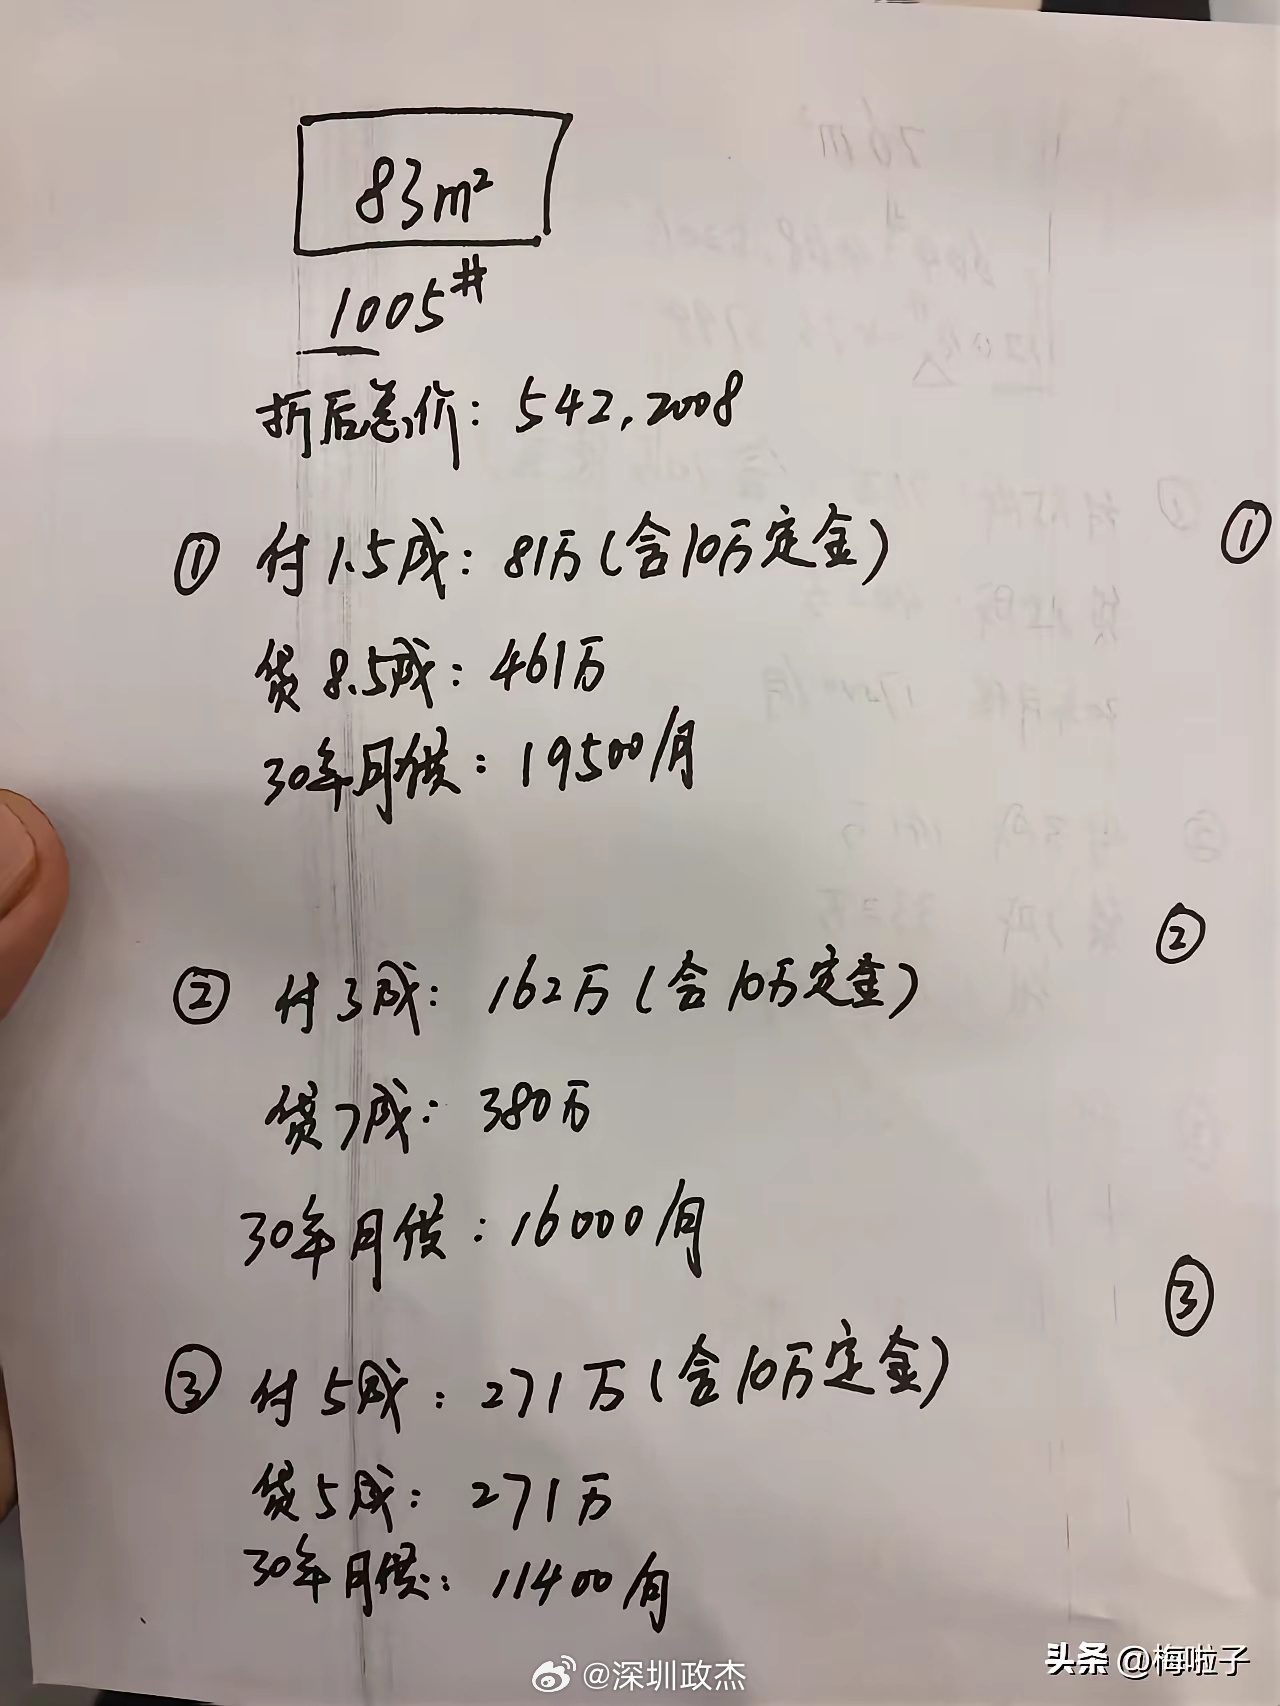 83m²
1005#
折后总价：542.2008
① 付1.5成：81万（含10万定金）
①
贷8.5成：461万
30年月供：19500/月
②
② 付3成：162万（含10万定金）
贷7成：380万
30年月供：16000/月
③
③ 付5成：271万（含10万定金）
贷5成：271万
30年月供：11400/月
@深圳政杰
头条 @梅啦子